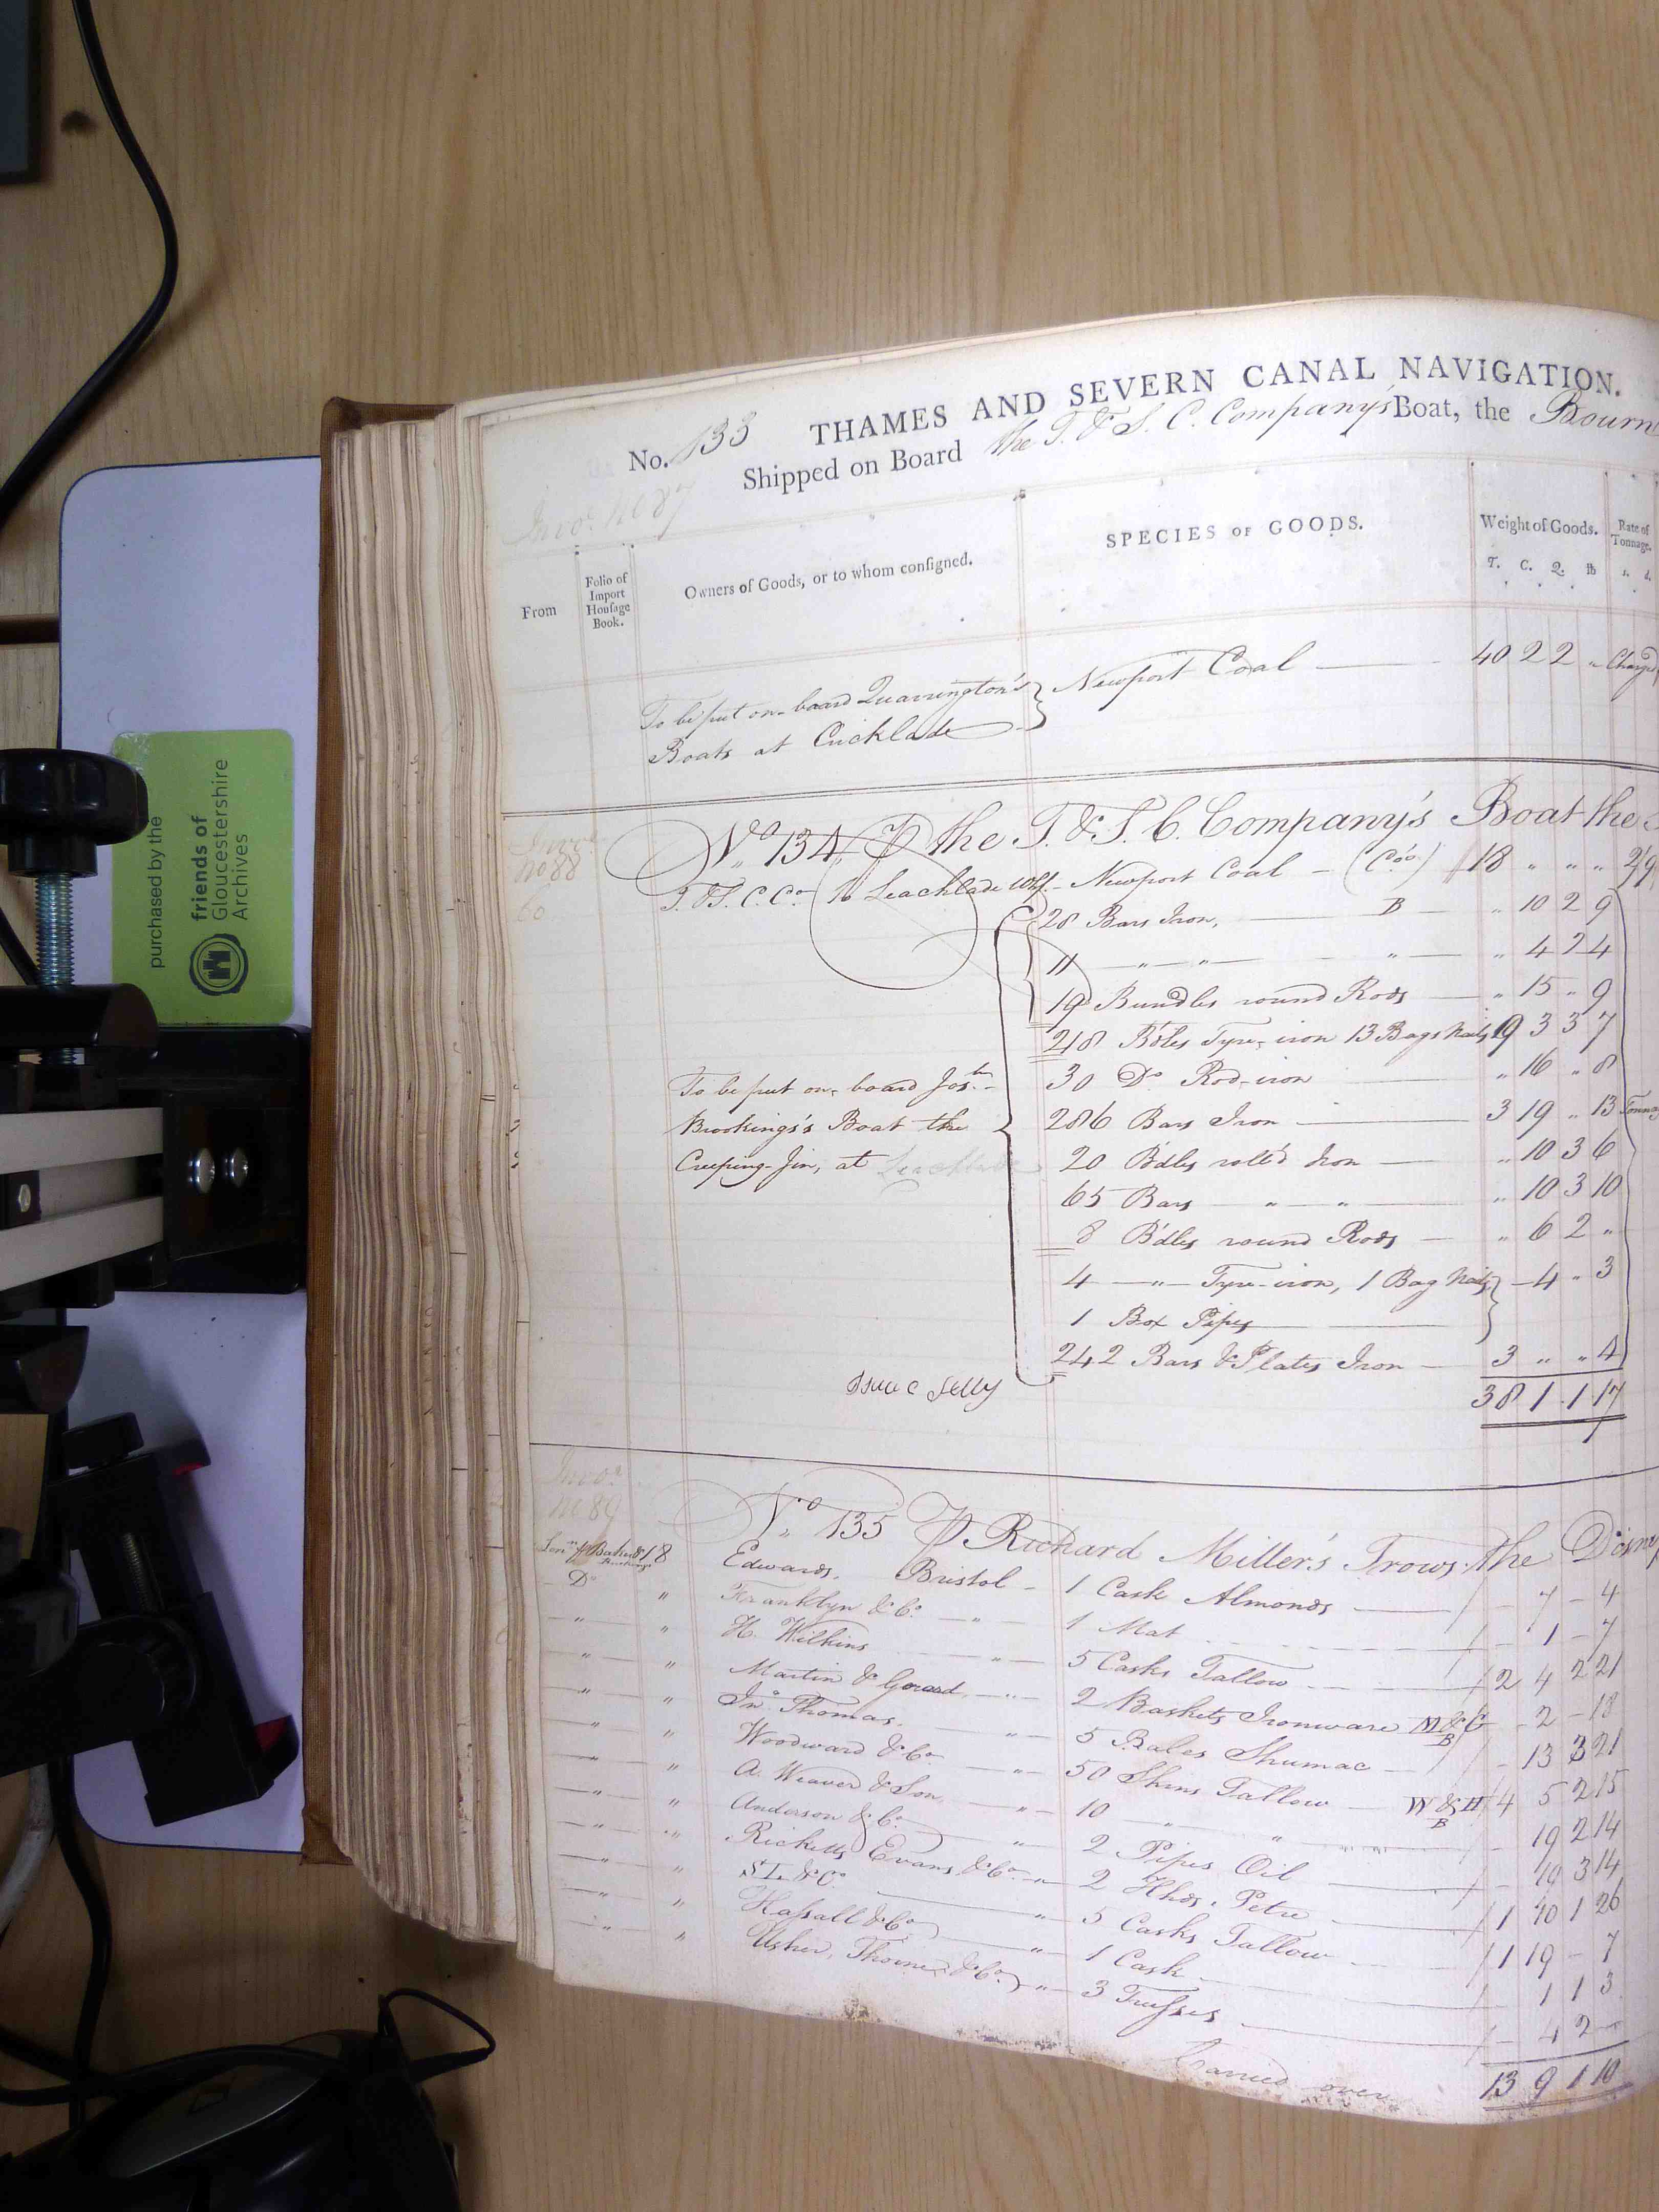 THAMES AND SEVERN CANAL NAVIGATION.
No. 133
Shipped on Board the T. & S. C. Company's Boat, the Bourn
Invo. No 87
From
Folio of Import Housage Book.
Owners of Goods, or to whom consigned.
SPECIES OF GOODS.
Weight of Goods.
T. C. Q. lb
Rate of Tonnage.
s. d.
To be put on-board Quarrington's Newport Coal 40 2 2 " Charged
Boats at Cricklade
Invo. No 88 No 134 P the T. & S. C. Company's Boat the
T. & S. C. Co. Leachlade Whf. Newport Coal (Co's) 18 " " " 2/9
28 Bars Iron, B " 10 2 9
11 " " " " 4 2 4
19 Bundles round Rods " 15 " 9
248 B'dles Tyre-iron 13 Bags Nails 19 3 3 7
30 Do Rod-iron " 16 " 8
To be put on-board Josh.
286 Bars Iron 3 19 " 13 Tonna
Brookings's Boat the
20 B'dles roll'd Iron " 10 3 6
Creeping-Jin, at Leachlade
65 Bars " " " 10 3 10
8 B'dles round Rods " 6 2 "
4 " Tyre-iron, 1 Bag Nails - 4 " 3
1 Box Pipes
242 Bars & Plates Iron 3 " " 4
Isaac Jelly
38 1 1 17
Invo. No 89 No 135 P Richard Miller's Trows the
18 Edwards, Bristol 1 Cask Almonds - 7 - 4
Do " Franklyn & Co. " 1 Mat - 1 - 7
" " H. Wilkins " 5 Casks Tallow 2 4 2 21
" " Martin & Gerard " 2 Baskets Ironware M&G B - 2 - 18
" " Jno. Thomas " 5 Bales Shumac - 13 3 21
" " Woodward & Co. " 50 Skins Tallow W&H B 4 5 2 15
" " A. Weaver & Son " 10 " " 19 2 14
" " Anderson & Co. " 2 Pipes Oil - 19 3 14
" " Ricketts Evans & Co. " 2 Hhds. Petre 1 10 1 26
" " S I. & Co. " 5 Casks Tallow 1 19 - 7
" " Hassall & Co. " 1 Cask 1 1 3
" " Usher, Thorne & Co. " 3 Trusses - 4 2 -
Carried over 13 9 1 10
purchased by the
friends of
Gloucestershire
Archives